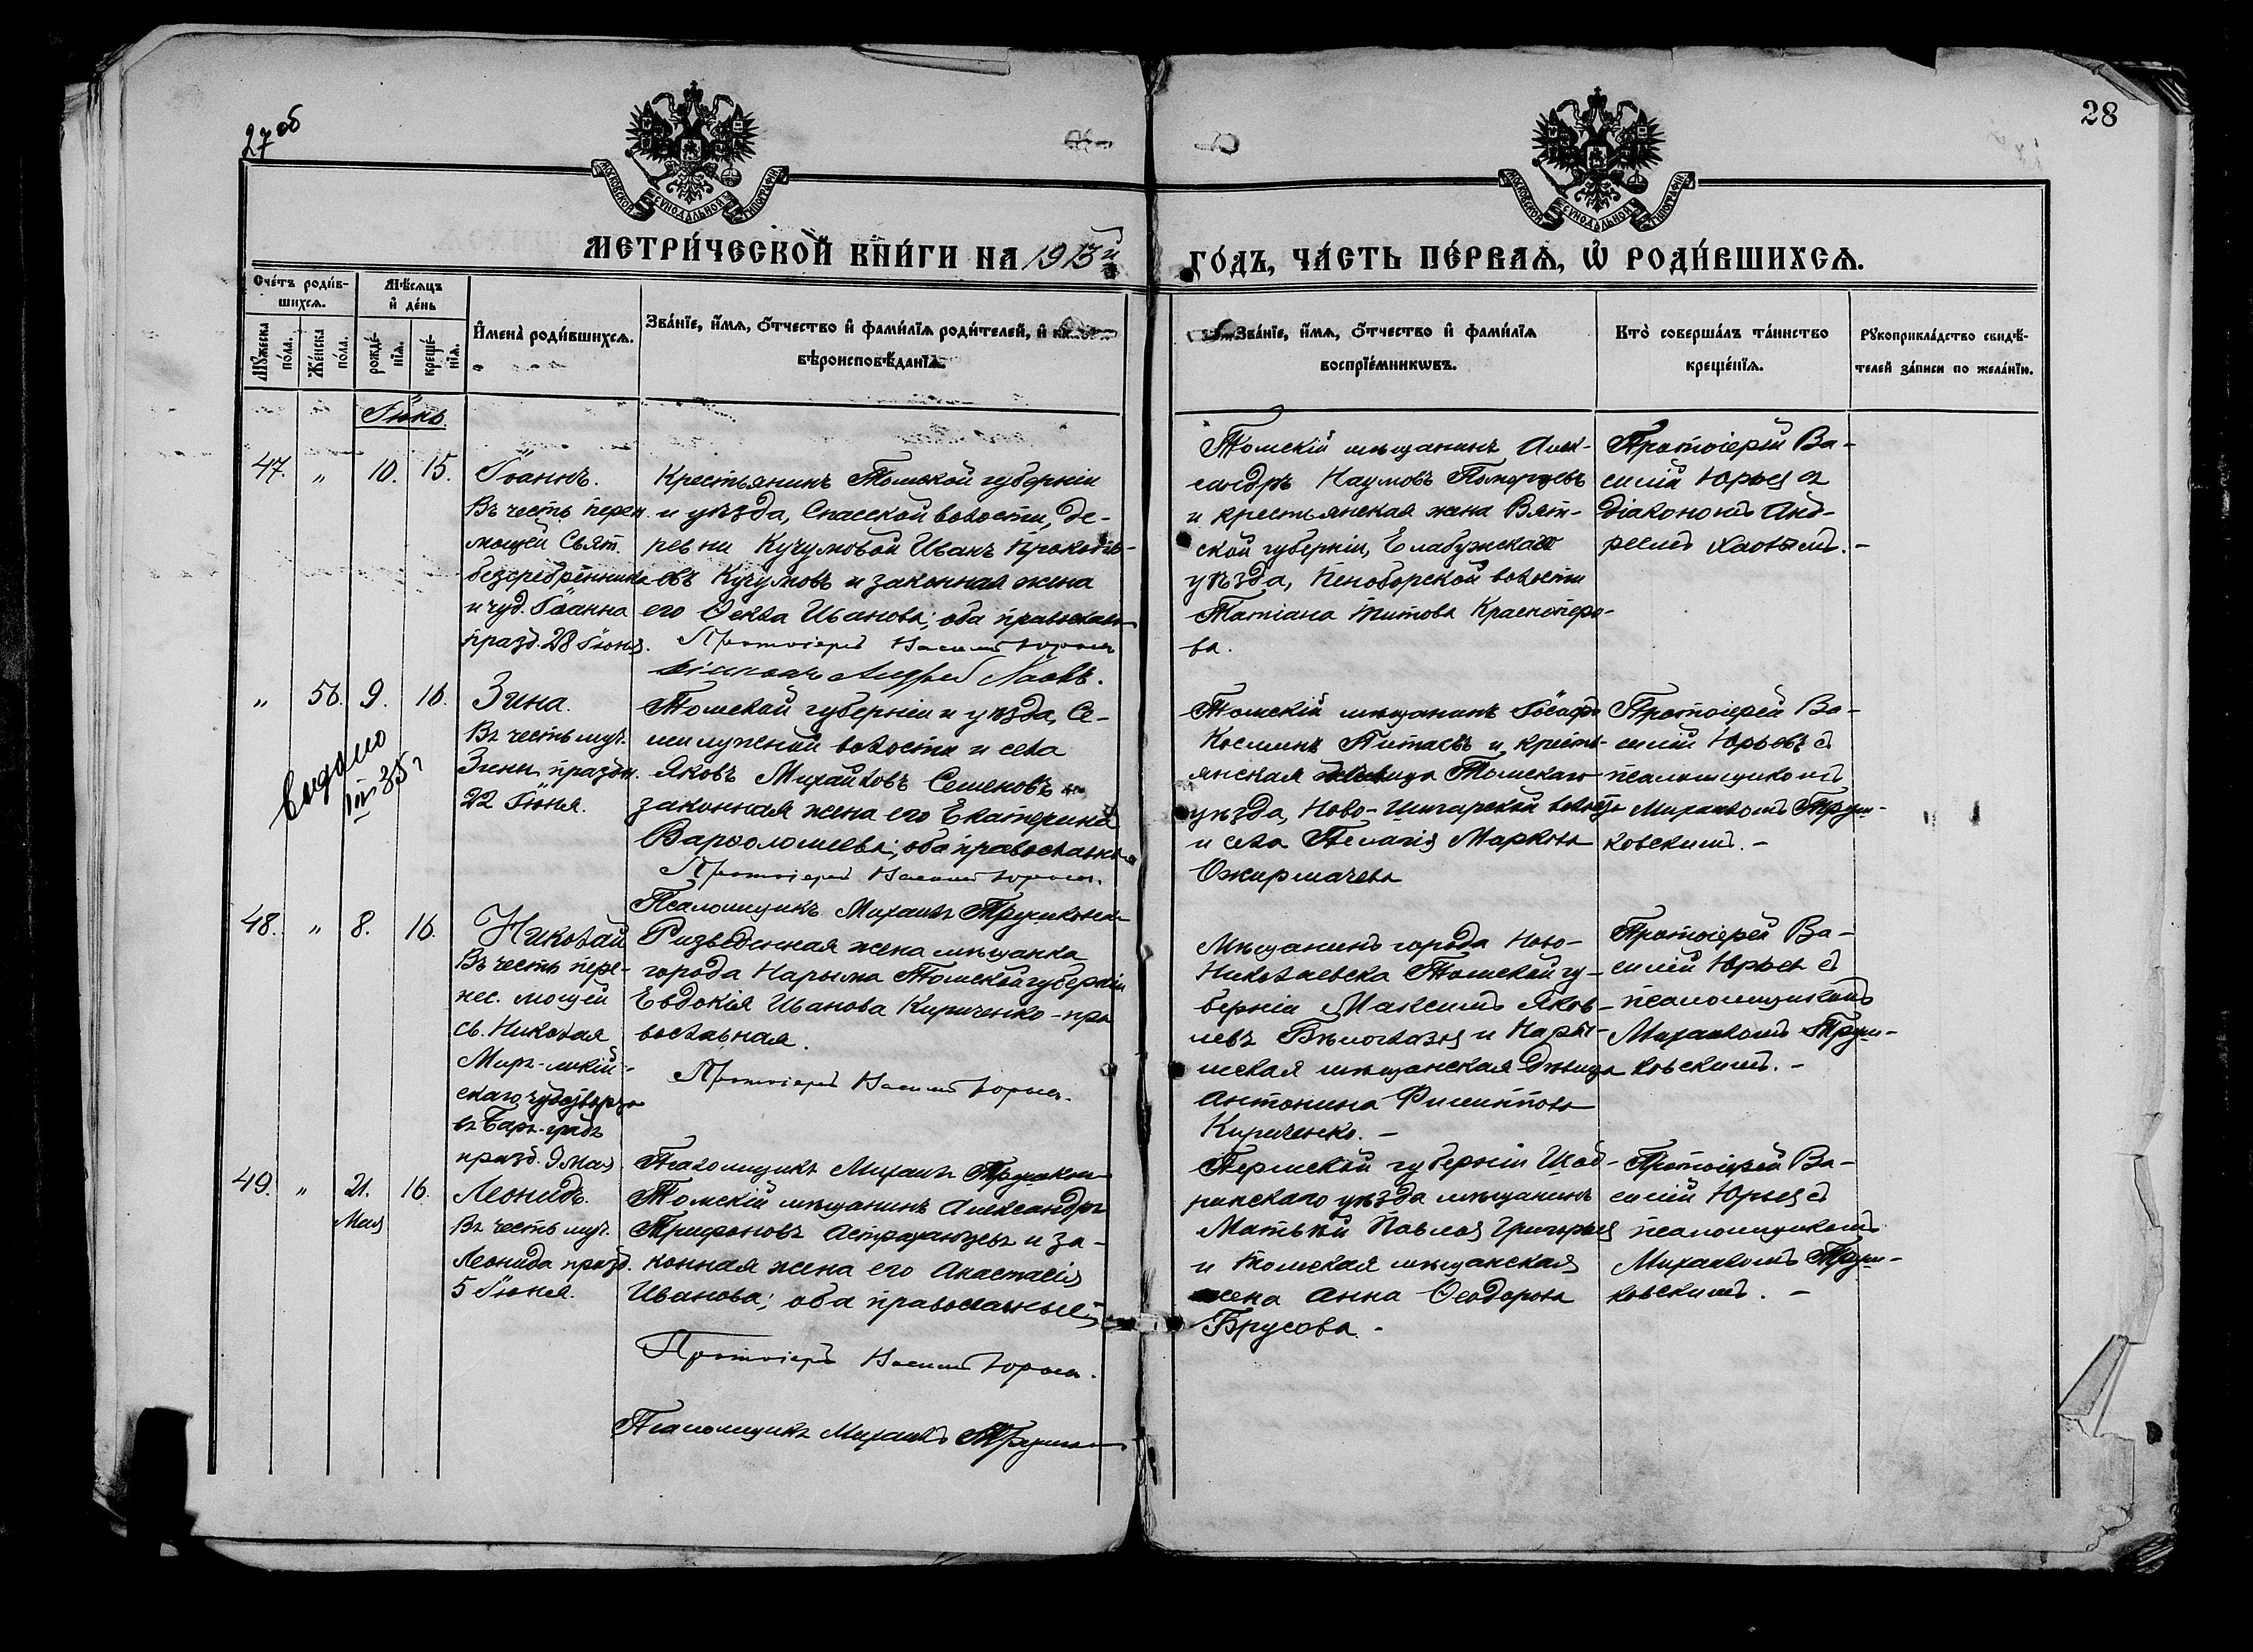 27 об
28
МОСКОВСКОЙ СѴНОДАЛЬНОЙ ТИПОГРАФІИ
МОСКОВСКОЙ СѴНОДАЛЬНОЙ ТИПОГРАФІИ
МЕТРИ́ЧЕСКОЙ КНИ́ГИ НА 1913й
ГО́ДЪ, ЧА́СТЬ ПЕ́РВАЯ, Ѡ РОДИ́ВШИХСЯ.
Счéтъ роди́в-
шихся.
Мѣ́сяцъ
и де́нь
Мꙋжеска по́ла.
Же́нска по́ла.
рожде́-нія.
креще́-нія.
Имена̀ роди́вшихся.
Зва́ніе, и́мя, о́тчество и фами́лія роди́телей, и
вѣроисповѣ́данія.
Зва́ніе, и́мя, о́тчество и фами́лія
воспріе́мниковъ.
Кто̀ соверша́лъ та́инство
креще́нія.
Рꙋкоприкла́дство свидѣ́-
телей за́писи по жела́нію.
Іюнь.
47. " 10. 15.
Іоаннъ.
Въ честь перен.
мощей Свят.
безсребренника
и чуд. Іоанна
празд. 28 Іюня.
Крестьянинъ Томской губерніи
и уѣзда, Спасской волости, де-
ревни Кучумовой Иванъ Прокопь-
евъ Кучумовъ и законная жена
его Ѳекла Иванова; оба правосл.
Протоіерей Василій Юрьевъ
Діаконъ Андрей Хаовъ.
Томскій мѣщанинъ Алек-
сандръ Наумовъ
и крестьянская жена Вят-
ской губерніи, Елабужскаго
уѣзда, волости
Татіана Титова Красноперо-
ва.
Протоіерей Ва-
силій Юрьевъ съ
діакономъ Анд-
реемъ Хаовымъ. -
" 56. 9. 16.
Выдано
35 г
Зина.
Въ честь муч.
Зины праздн.
22 Іюня.
Томской губерніи и уѣзда, Се-
милужной волости и села
Яковъ Михайловъ Семеновъ и
законная жена его Екатерина
Варѳоломеева; оба православн.
Протоіерей Василій Юрьевъ.
Псаломщикъ Михаилъ Трушковскій
Томскій мѣщанинъ Іосафъ
Косминъ Питаевъ и кресть-
янская дѣвица Томскаго
уѣзда, Ново- волости
и села Пелагія Маркова
Протоіерей Ва-
силій Юрьевъ съ
псаломщикомъ
Михаиломъ Труш-
ковскимъ. -
48. " 8. 16.
Николай
Въ честь пере-
нес. мощей
св. Николая
Миръ-ликій-
скаго чудотворца
въ Баръ-градъ
празд. 9 Мая.
Разведенная жена мѣщанка
города Нарыма Томской губерніи
Евдокія Иванова Кириченко - пра
вославная.
Протоіерей Василій Юрьевъ.
Псаломщикъ Михаилъ Трушковскій
Мѣщанинъ города Ново-
Николаевска Томской гу-
берніи Максимъ Яков-
левъ Бѣлоглазъ и Нары-
мская мѣщанская дѣвица
Антонина Филиппова
Кириченко. -
Протоіерей Ва-
силій Юрьевъ съ
псаломщикомъ
Михаиломъ Труш-
ковскимъ. -
49. " 21. 16.
Мая
Леонидъ.
Въ честь муч.
Леонида празд.
5 Іюня.
Томскій мѣщанинъ Александръ
Трифоновъ Астраханцевъ и за-
конная жена его Анастасія
Иванова; оба православные
Протоіерей Василій Юрьевъ.
Псаломщикъ Михаилъ Трушковскій
Пермской губерніи Шад-
ринскаго уѣзда мѣщанинъ
Матвѣй Павловъ Григорьевъ
и томская мѣщанская
жена Анна Ѳеодорова
Брусова. -
Протоіерей Ва-
силій Юрьевъ съ
псаломщикомъ
Михаиломъ Труш-
ковскимъ. -